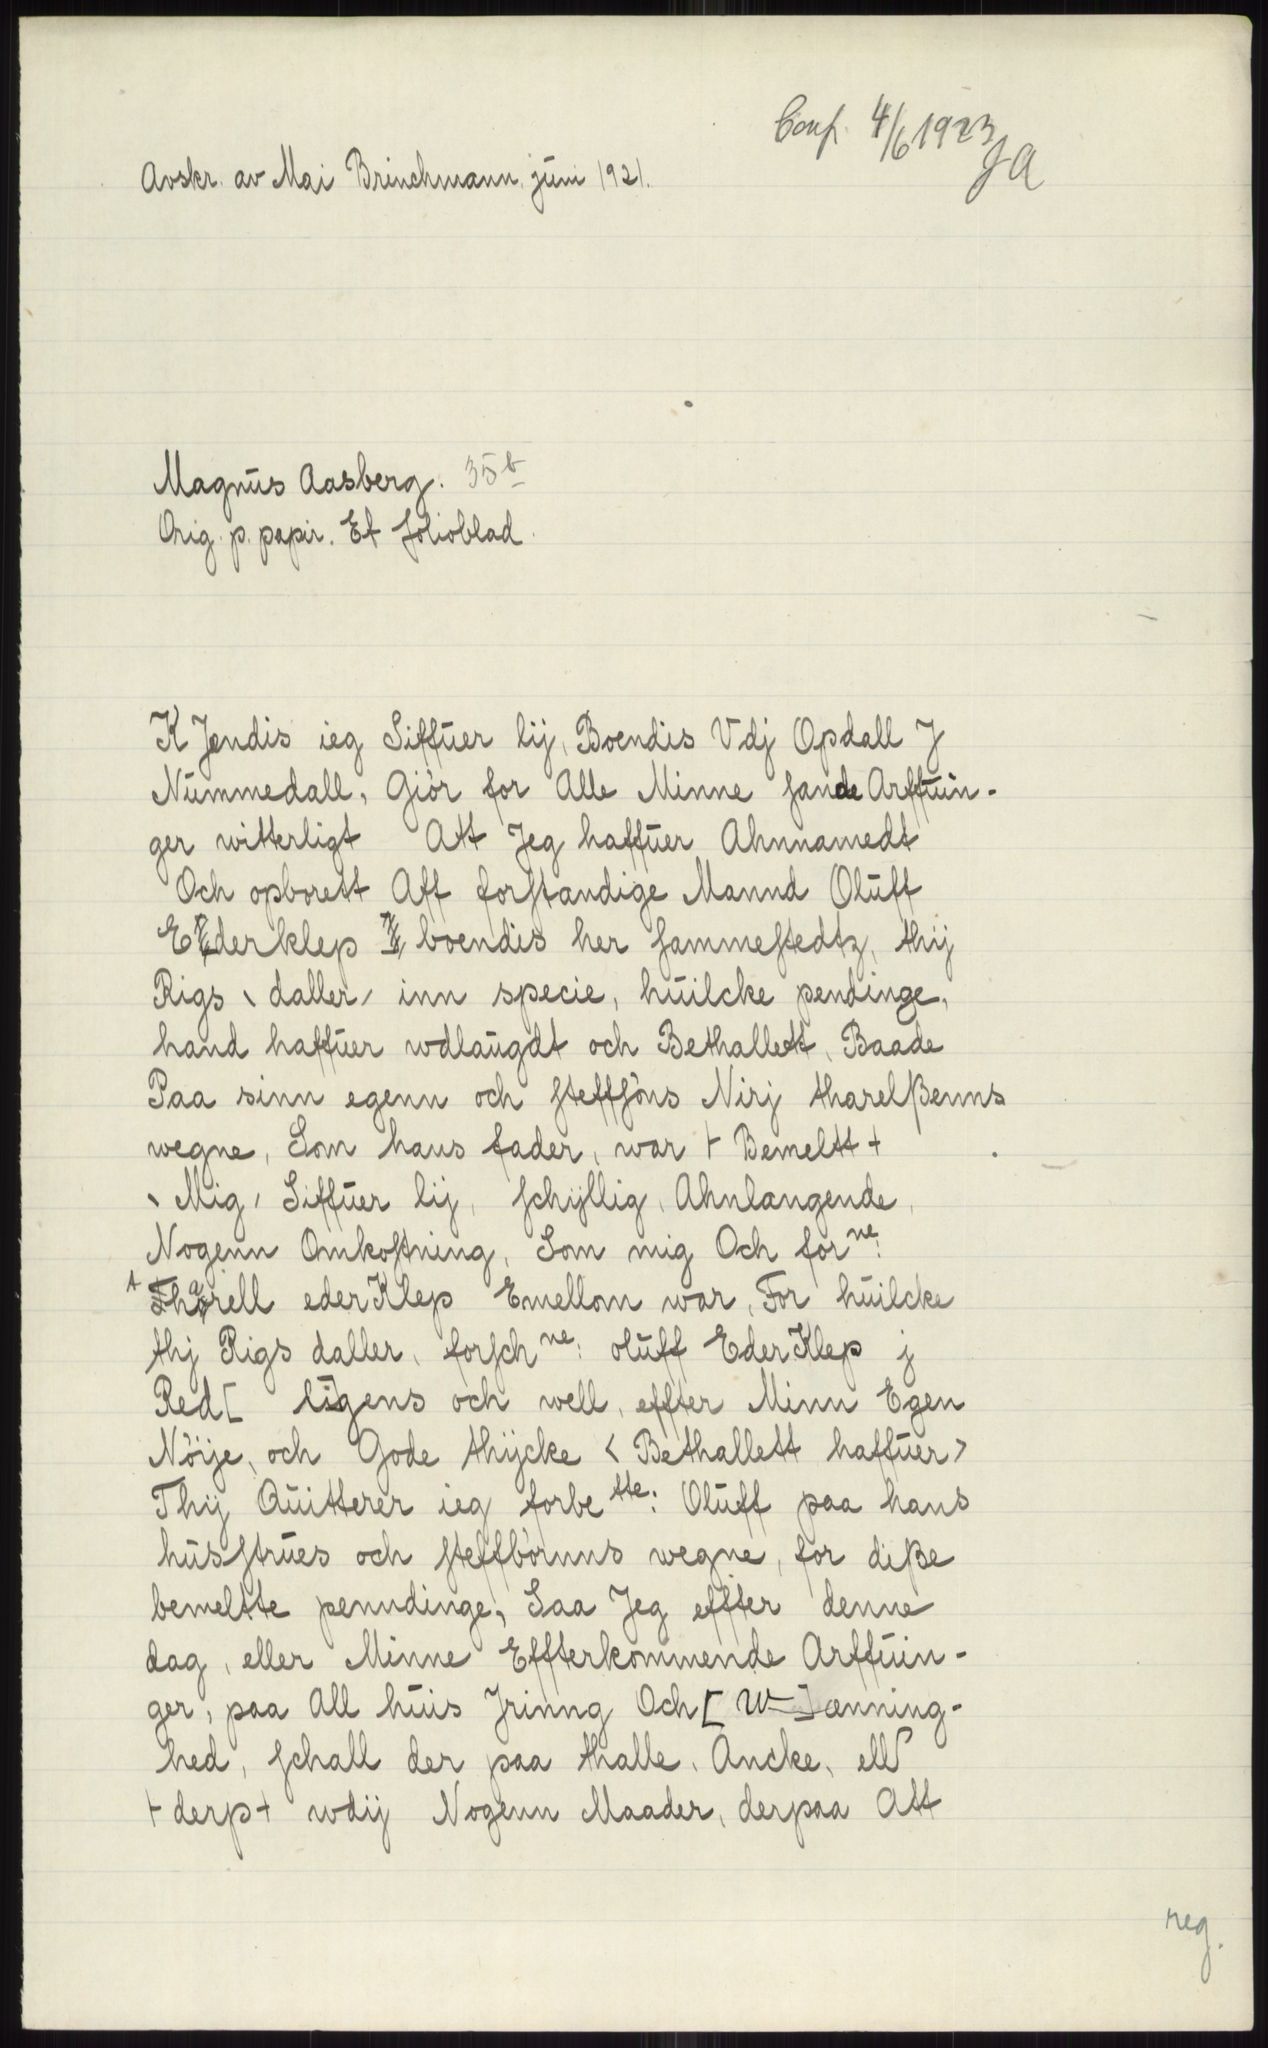 Conf. 4/6 1923
JA
Avskr. av Mai Brinchmann, juni 1921.
Magnus Aasberg. 35 b
Orig. p. papir. Et folioblad.
K Jendis ieg Siffuer lij, Boendis Vdj Opdall J
Nummedall, Giör for Alle Minne sande Arffuin-
ger witterligt Att Jeg haffuer Ahnnamedt
Och opborett Aff forstandige Mannd Oluff
Ederklep boendis her sammestedtz, thij
Rigs \ daller / inn specie, huilcke pendinge,
hand haffuer wdlaugdt och Bethallett, Baade
Paa sinn egenn och steffsöns Nirj tharelßenns
wegne, Som hans fader, war + Bemeltt +
\ Mig / Siffuer lij, schyllig, Ahnlangende,
Nogenn Omkostning, Som mig Och for ne:
Tharell eder Klep Emellom war, For huilcke
thj Rigs daller, forsch ne: oluff Eder Klep j
Red[ li]gens och well, effter Minn Egen
Nöije, och Gode thijcke < Bethallett haffuer >
Thij Quitterer ieg forbe tte: Oluff paa hans
husstrues och steffbörnns wegne, for diße
bemeltte penndinge, Saa Jeg effter denne
dag, eller Minne Effterkommende Arffuin-
ger, paa All huis Jrinng Och [ W ] ænning-
hed, schall der paa thalle, Ancke, ell
+ derp + wdij Nogenn Maader, derpaa Att
reg.